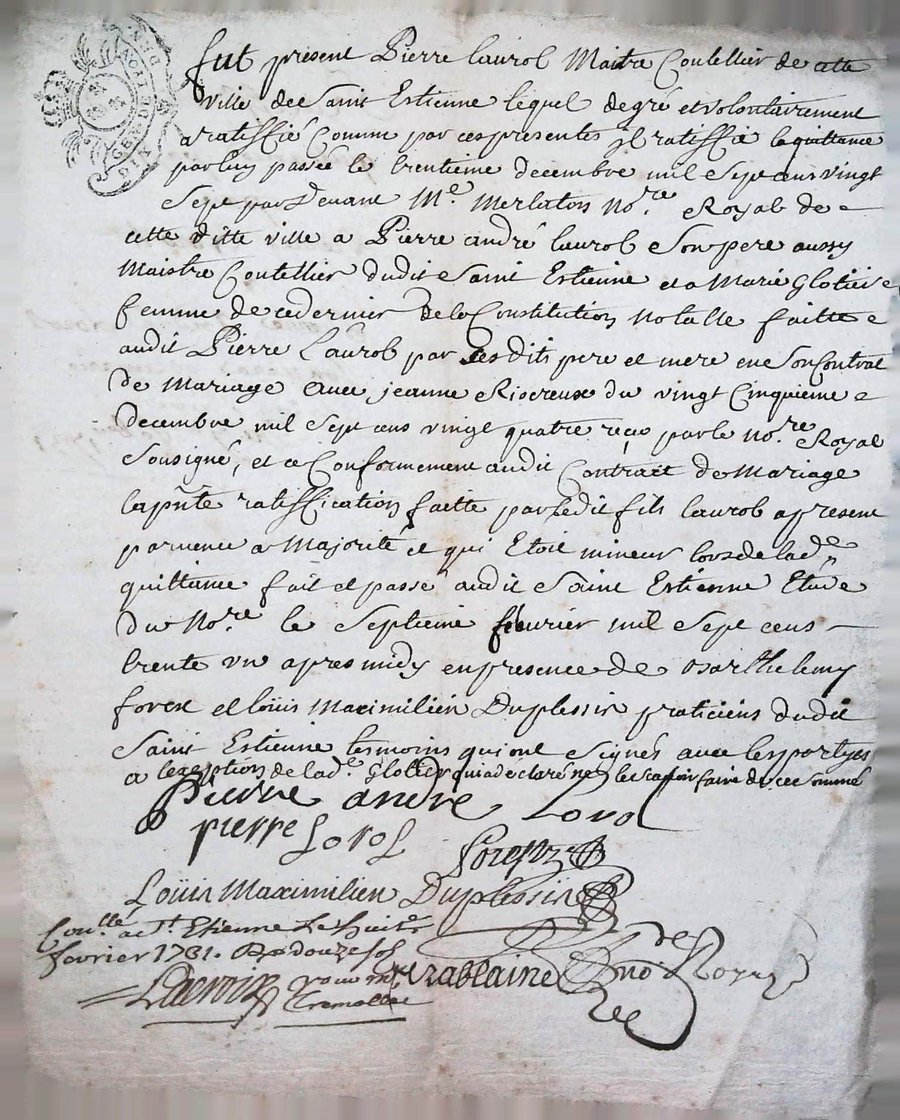 fut présent Pierre laurob Maitre Coutellier de cette
ville de Saint Estienne lequel de gré et volontairement
a ratiffié Comme par ces presentes il ratiffie la quittance
par luy passée le trentieme decembre mil Sept cens vingt
Sept par Devant Me. Merlaton Nore. Royal de
cette ditte ville a Pierre andré laurob Son pere aussy
Maistre Coutellier dudit Saint Estienne et a Marie Glotier
femme de ce dernier de la Constitution Notalle faitte
audit Pierre Laurob par Lesdits pere et mere en Son Contrat
de Mariage avec jeanne du vingt Cinquieme
decembre mil Sept cens vingt quatre reçû par le Nore. Royal
Sousigné, et ce Conformement audit Contract de Mariage
la pnte ratiffication faitte par Ledit fils laurob apresent
parvenu a Majorité et qui Etoit mineur lors de lade.
quittance fait et passé audit Saint Estienne Etude
du Nore. le Septieme février mil Sept cens
trente un apres midy en presence de Barthelemy
forest et loüis Maximilien Duplessis praticiens dudit
Saint Estienne tesmoins qui ont Signés avec les partyes
a lexception de lade. Glotier qui a declaré ne le scavoir faire de ce sommé
Pierre andre Lorol
Pierre Lorol
Forest
Loüis Maximilien Duplessis
Conllé. a St. Etienne Le huite
fevrier 1731. R douze sols
Lacroix
Trablaine no Royal